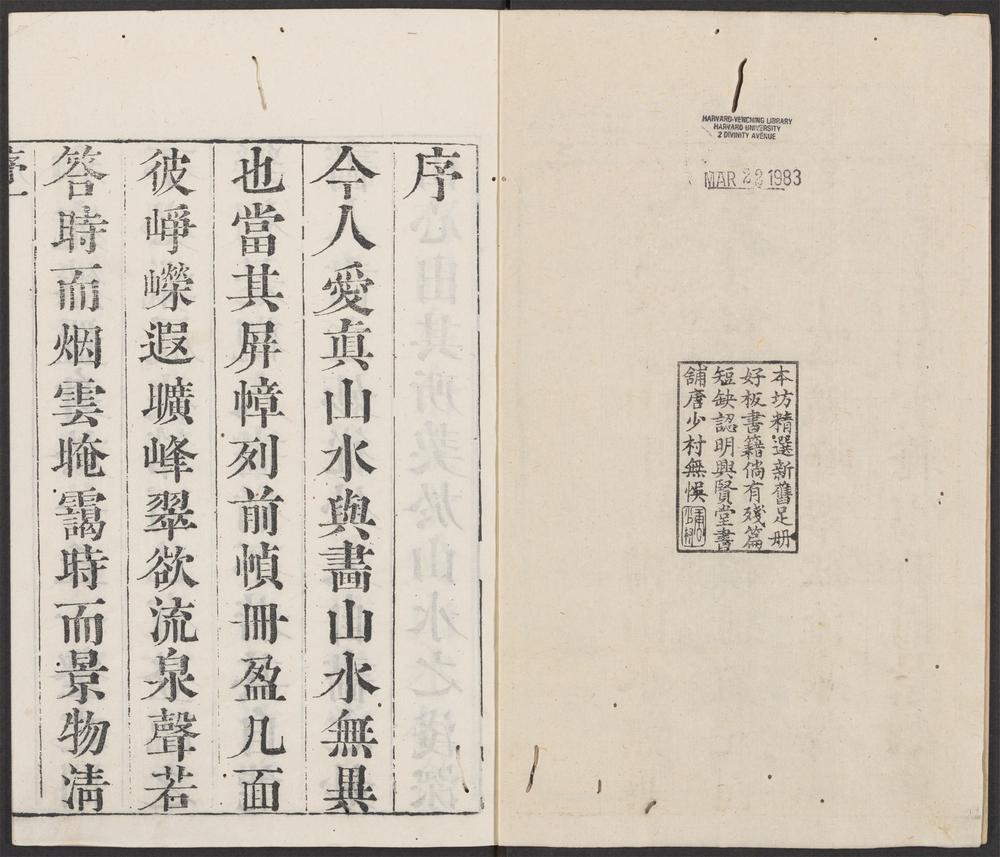 HARVARD-YENCHING LIBRARY
HARVARD UNIVERSITY
2 DIVINITY AVENUE
MAR 22 1983
本坊精選新舊足册
好板書籍倘有殘篇
短缺認明興賢堂書
舖唐少村無悞
序
今人愛真山水與畫山水無異
也當其屏幛列前幀冊盈几面
彼崢嶸遐曠峰翠欲流泉聲若
答時而烟雲晻靄時而景物淒